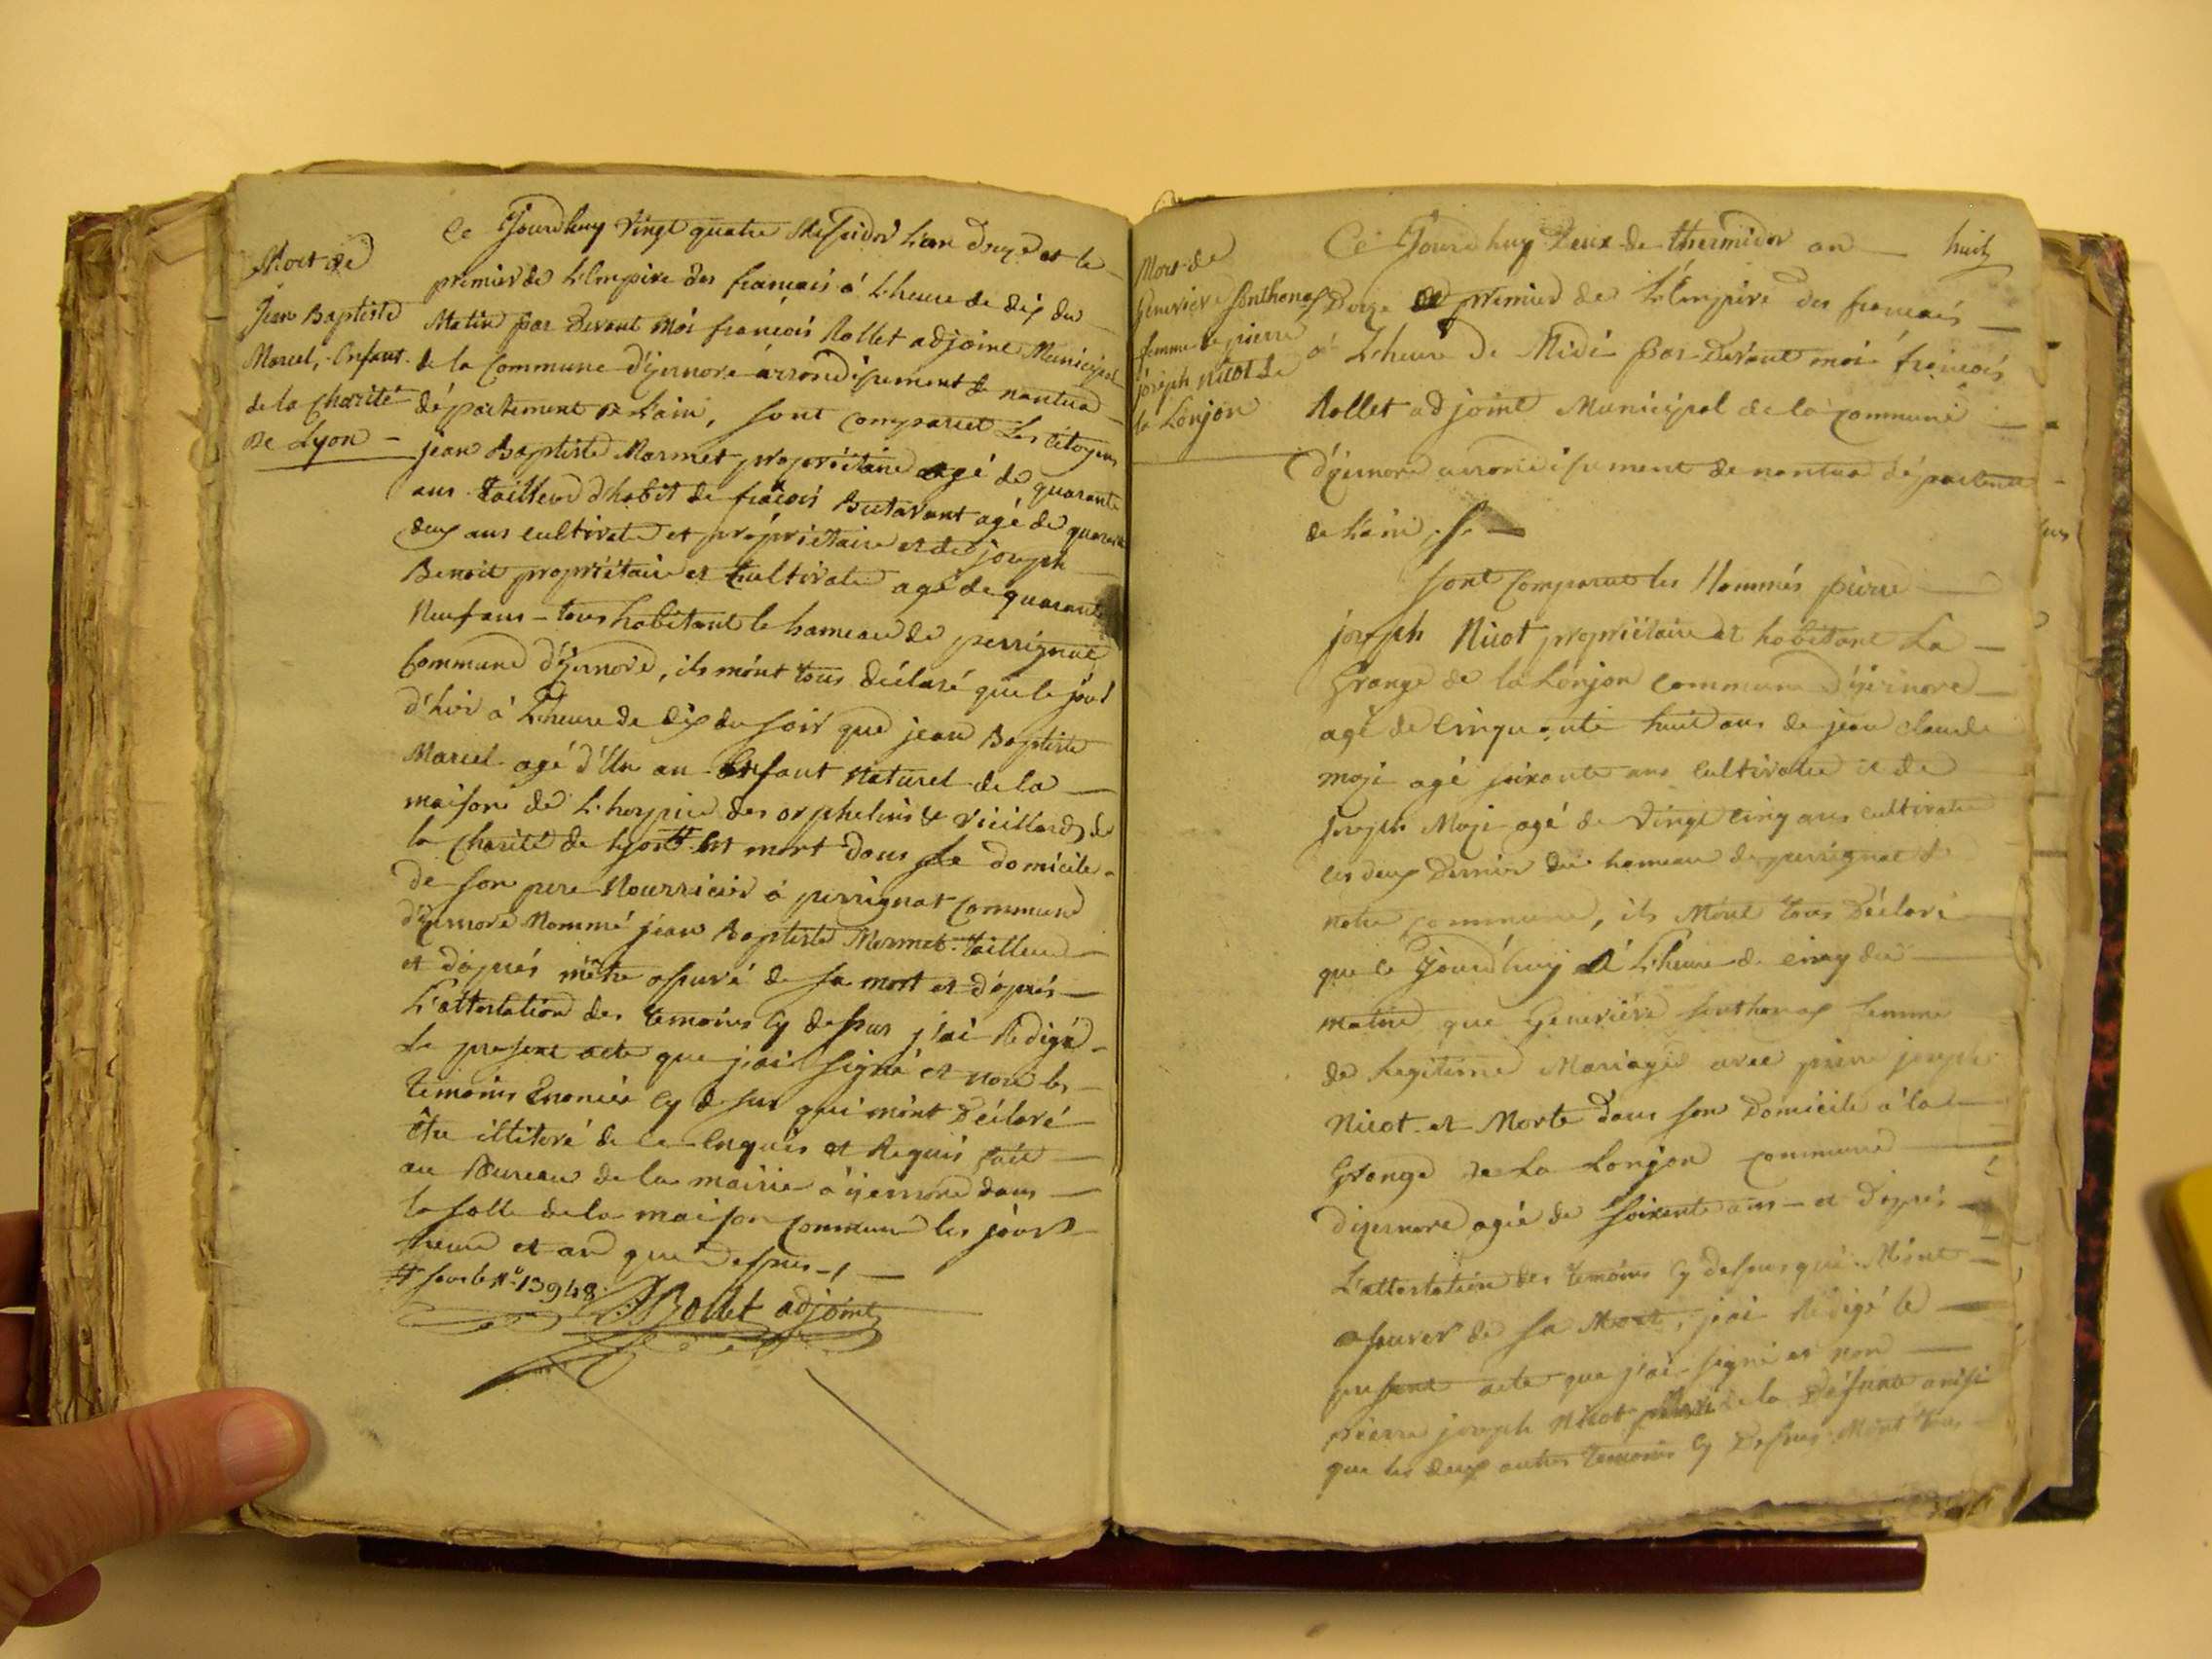 Mort de
Jean Baptiste
Marcel, Enfant
de la Charité
De Lyon
Ce Jourdhuy Vingt quatre Messidor L'an douze et le
premier de L'Empire des francais à L'heure de dix du
Matin par Devant Moi francois Rollet adjoint Municipal
de la Commune d'yernore arrondissement de nantua
département de L'ain, sont comparuet Les citoyens
jean Baptiste Marmet propriétaire agé de quarante
ans Tailleur d'habit de fraçois Butavant agé de quarante
deux ans cultivate et propriétaire et de joseph
Benoit propriétaire et Cultivate agé de quarante
Neuf ans – tous habitant le hameau de perrignat
Commune d'yernore, ils m'ont tous déclaré que le jour
d'hier à L'heure de dix du soir que jean Baptiste
Marcel agé d'Un an Enfant Naturel de la
maison de L'hospice des orphelins & vieillards de
la Charité de Lyon # est mort dans le domicile
de son pere Nourricier à perrignat Commune
d'yernore Nommé jean Baptiste Mermet Tailleur
et d'apres m'être assuré de sa mort et d'après
L'attestation des temoins cy dessus j'ai Redigé
Le present acte que j'ai signé et non les
temoins Enoncés cy dessus qui m'ont Déclaré
être illiteré de ce Enquis et Requis fait
au Bureau de la mairie à yernore dans
la salle de la maison Commune les jours
heure et an que dessus
# sous le N° 13948.
Rollet adjoint
Mort de
Genevieve Sonthonax
femme de pierre
joseph Nicot de
la Lonjon
Ce Jourdhuy Deux de thermidor an
huit
Douze et premier de L'Empire des francais
à L'heure De Midi par Devant moi francois
Rollet adjoint Municipal de la commune
d'yernore arrondissement de nantua départemet
de L'ain
sont Comparut les Nommés pierre
joseph Nicot propriétaire et habitant La
Grange de la Lonjon Commune d'yernore
agé de Cinquante huit ans de jean claude
moji agé soixante ans Cultivateu et de
Joseph Moji agé de Vingt cinq ans cultivate
les deux Dernier du hameau de perrignat de
notre commune, ils M'ont tous Déclaré
que ce Jourdhuy à L'heure de cinq du
matin que Genevieve Sonthonax femme
de Legitime Mariage avec pierre joseph
Nicot et Morte dans son Domicile à la
Grange de La Lonjon commune
d'yernore agée de Soixante ans – et d'après
L'attestation des temoins cy dessus qui M'ont
assurer de sa Mort, j'ai Rédigé le
present acte que j'ai signé et non
pierre joseph Nicot de la Défunte ainsi
que les deux autres temoins cy Dessus M'ont tous